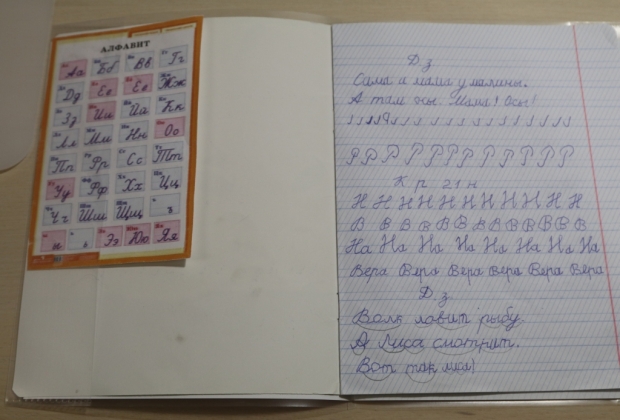 АЛФАВИТ
Аа Бб Вв Гг
Дд Ее Ёё Жж
Зз Ии Йй Кк
Лл Мм Нн Оо
Пп Рр Сс Тт
Уу Фф Хх Цц
Чч Шш Щщ ъ
ы ь Ээ Юю Яя
Д з
Сама и мама у малины.
А там осы. Мама! Осы!
Р Р Р Р Р Р Р Р Р Р Р
К р 21 н
Н Н Н Н Н Н Н Н Н Н
В В В В В В В В В В В
На На На На На На На На
Вера Вера Вера Вера Вера Вера
Д з
Волк ловит рыбу.
А Лиса смотрит.
Вот так